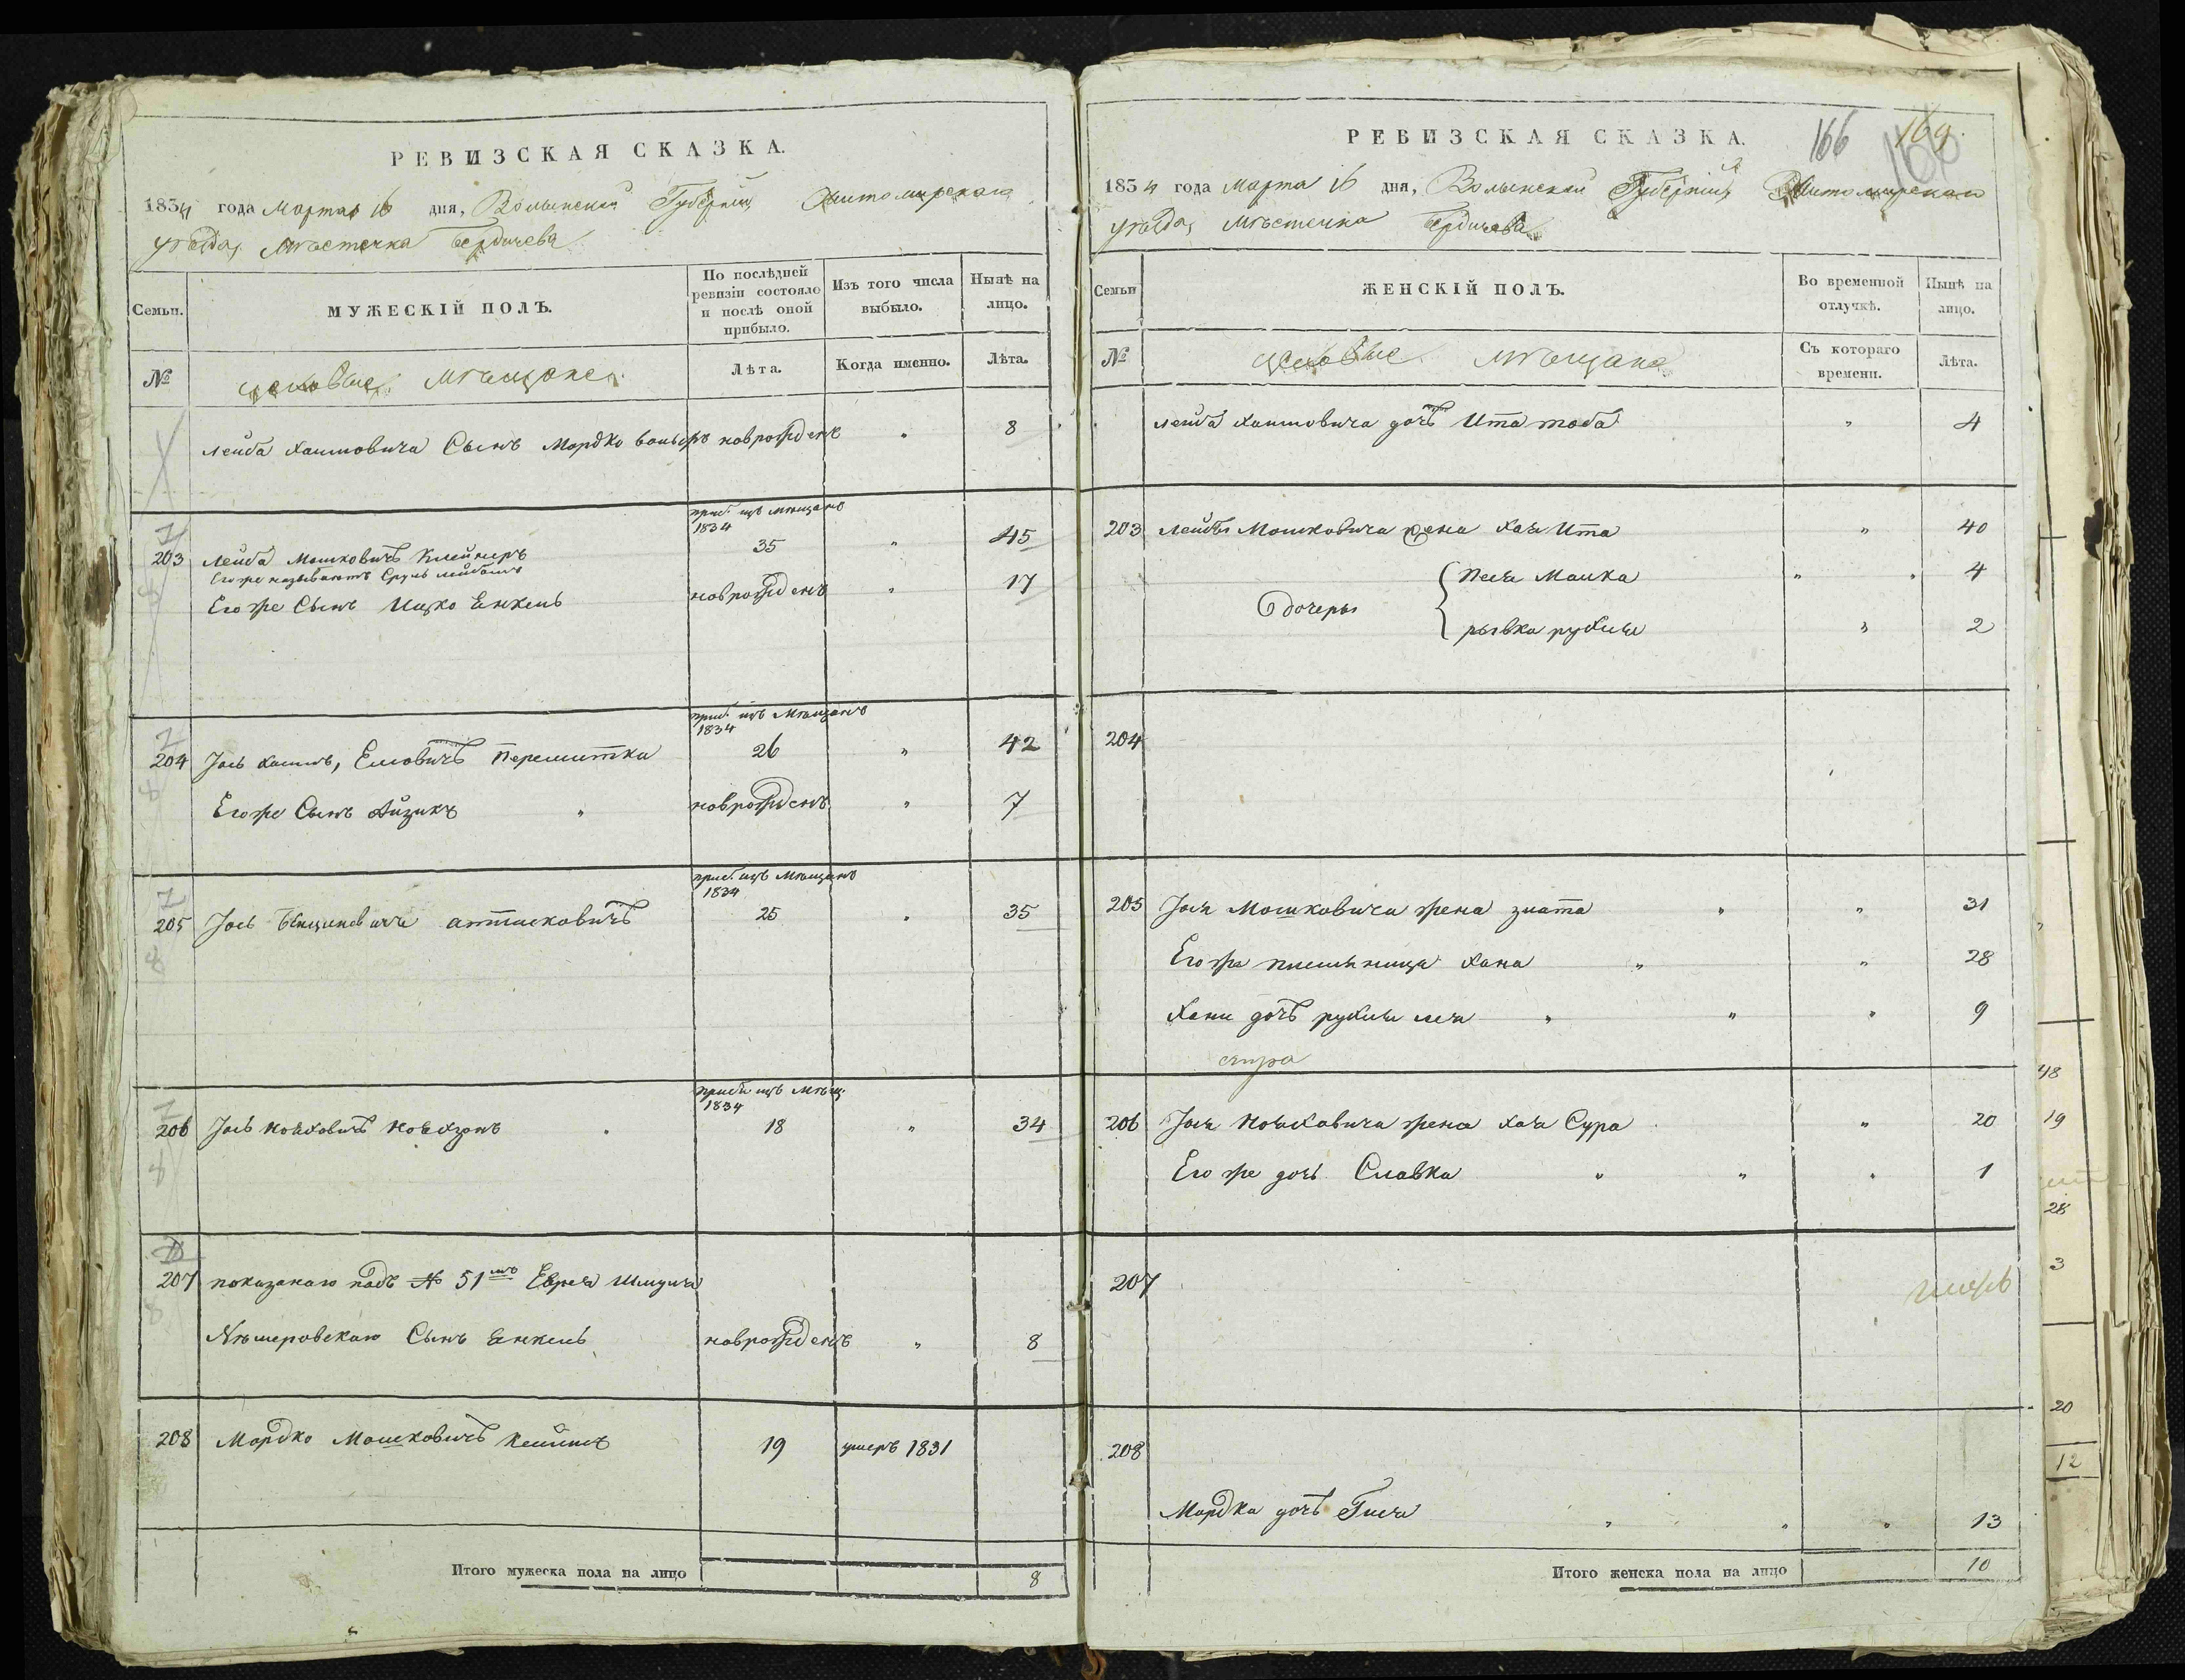 РЕВИЗСКАЯ СКАЗКА.
1834 года Марта 16 дня, Волынской Губерніи Житомирскаго
уѣзда, Мѣстечка Бердичева
Семьи.
МУЖЕСКІЙ ПОЛЪ.
По послѣдней ревизіи состояло и послѣ оной прибыло.
Изъ того числа выбыло.
Нынѣ на лицо.
№
цеховые мѣщане
Лѣта.
Когда именно.
Лѣта.
лейба Хаимовича Сынъ Мордко новрожденъ " 8
приб. изъ мѣщанъ
1834
203 Лейба Мошковичъ Клейнеръ 35 " 45
Егоже называютъ Сруль лейбошъ
Егоже Сынъ Ицко Енкель новрожденъ " 17
приб. изъ Мѣщанъ
1834
204 Іось Хаимъ, Елловичъ Перемитка 26 " 42
Егоже Сынъ Айзикъ " новрожденъ " 7
приб. изъ Мѣщанъ
1834
205 Іось 25 " 35
приб. изъ Мѣщ.
1834
206 Іось Ноъховичъ 18 " 34
207 показанаго подъ № 51мъ Еврея Шмуля
Нѣмеровскаго Сынъ Енкель новрожденъ " 8
208 Мордко Мошковичъ 19 умеръ 1831
Итого мужеска пола на лицо 8
РЕВИЗСКАЯ СКАЗКА.
166 169
166
1834 года Марта 16 дня, Волынской Губерніи Житомирскаго
уѣзда, Мѣстечка Бердичева
Семьи
ЖЕНСКІЙ ПОЛЪ.
Во временной отлучкѣ.
Нынѣ на лицо.
№
цеховые мѣщане
Съ котораго времени.
Лѣта.
лейба Хаимовича дочь Ита тоба " 4
203 Лейбы Мошковича жена Хая Ита " 40
Песя Малка " " 4
дочеры
рывка рухля " 2
204
205 Іося Мошковича жена злата " " 31
Егоже племяница Хана " " 28
Хани дочь рухля лея " " " 9
206 Іося Ноъховича жена Хая Сура " 20
Егоже дочь Славка " " " 1
207
208
Мордка дочь Гися " " " 13
Итого женска пола на лицо 10
48
19
28
3
20
12